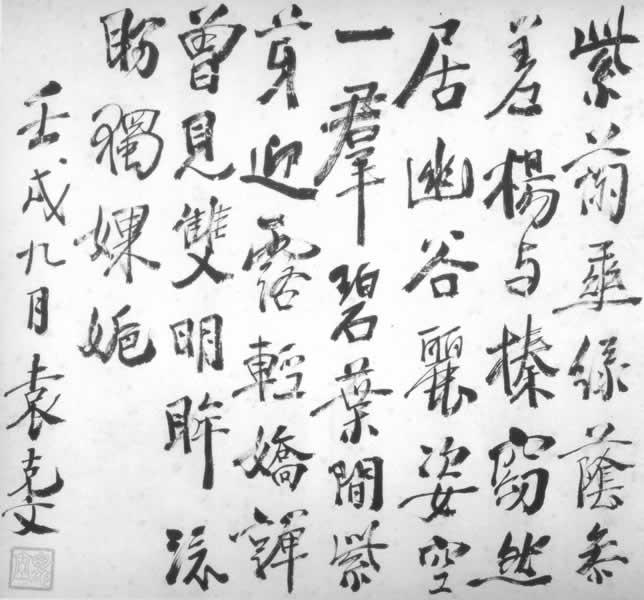 紫蘭垂綠蔭參
差楊与榛窈然
居幽谷麗姿空
一羣碧葉間紫
芽迎露輕嬌
曾見雙明眸流
盼獨婐
壬戌九月袁克文